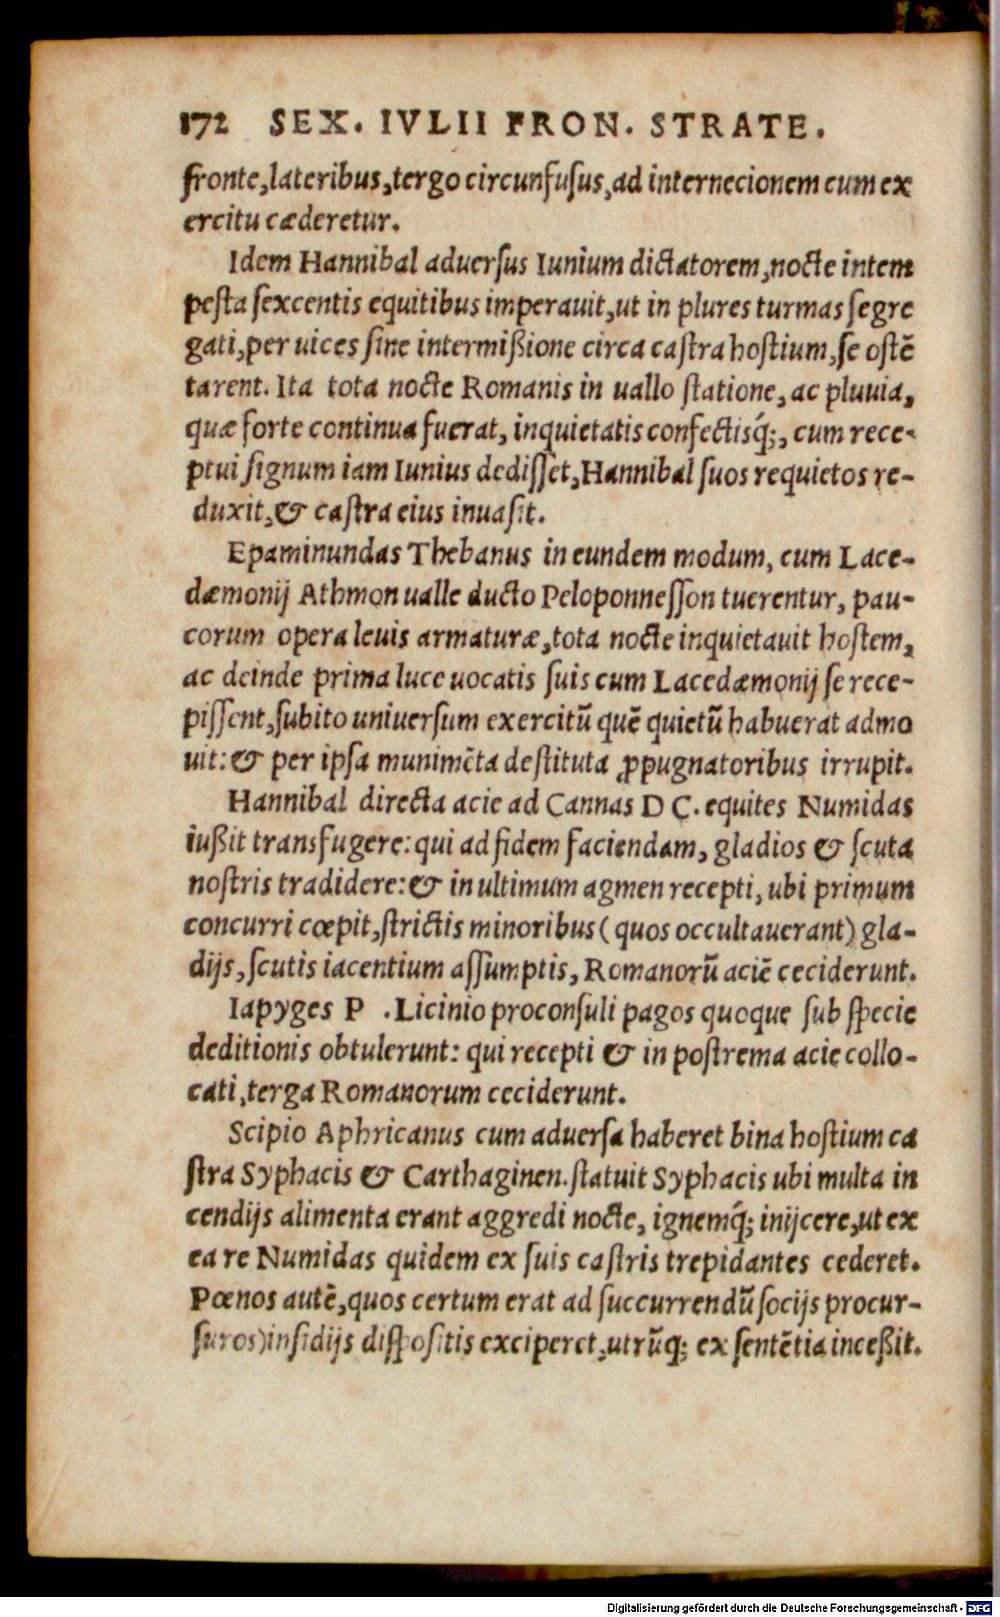 172 SEX. IVLII FRON. STRATE.
fronte, lateribus, tergo circunfuſus, ad internecionem cum ex
ercitu cæderetur.
Idem Hannibal aduerſus Iunium dictatorem, nocte intem
peſta ſexcentis equitibus imperauit, ut in plures turmas ſegre
gati, per uices ſine intermißione circa caſtra hoſtium, ſe oſtē
tarent. Ita tota nocte Romanis in uallo ſtatione, ac pluuia,
quæ forte continua fuerat, inquietatis confectisq́;, cum rece-
ptui ſignum iam Iunius dediſſet, Hannibal ſuos requietos re-
duxit, & caſtra eius inuaſit.
Epaminundas Thebanus in eundem modum, cum Lace-
dæmonij Athmon ualle ducto Peloponneſſon tuerentur, pau-
corum opera leuis armaturæ, tota nocte inquietauit hoſtem,
ac deinde prima luce uocatis ſuis cum Lacedæmonij ſe rece-
piſſent, ſubito uniuerſum exercitū quē quietū habuerat admo
uit: & per ipſa munimēta deſtituta ꝓpugnatoribus irrupit.
Hannibal directa acie ad Cannas D C. equites Numidas
iußit transfugere: qui ad fidem faciendam, gladios & ſcuta
noſtris tradidere: & in ultimum agmen recepti, ubi primum
concurri cœpit, ſtrictis minoribus (quos occultauerant) gla-
dijs, ſcutis iacentium aſſumptis, Romanorū aciē ceciderunt.
Iapyges P . Licinio proconſuli pagos quoque ſub ſpecie
deditionis obtulerunt: qui recepti & in poſtrema acie collo-
cati, terga Romanorum ceciderunt.
Scipio Aphricanus cum aduerſa haberet bina hoſtium ca
ſtra Syphacis & Carthaginen. ſtatuit Syphacis ubi multa in
cendijs alimenta erant aggredi nocte, ignemq́; inijcere, ut ex
ea re Numidas quidem ex ſuis caſtris trepidantes cederet.
Pœnos autē, quos certum erat ad ſuccurrendū ſocijs procur-
ſuros) inſidijs diſpoſitis exciperet, utrūq; ex ſentētia inceßit.
Digitalisierung gefördert durch die Deutsche Forschungsgemeinschaft - DFG